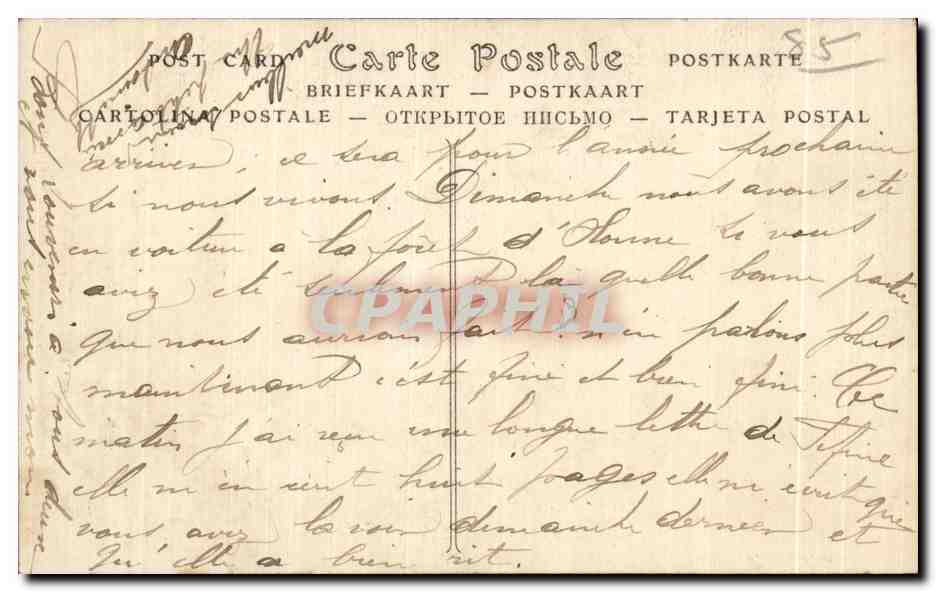 85
POST CARD Carte Postale POSTKARTE
BRIEFKAART — POSTKAART
CARTOLINA POSTALE — ОТКРЫТОЕ ПИСЬМО — TARJETA POSTAL
arriver, ce sera pour l'année prochaine
si nous vivons. Dimanche nous avons été
en voiture à la forêt d'Olonne si vous
aviez été seulement là quelle bonne partie
que nous aurions fait! n'en parlons plus
maintenant c'est fini et bien fini. Ce
matin j'ai reçu une longue lettre de Fifine
elle m'en écrit huit pages elle m'écrit que
vous avez la voir dimanche dernier et
qu'elle a bien rit.
bons souvenirs à vous deux
CPAPHIL